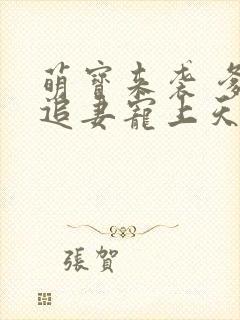 萌寶來袭 爹
追妻寵上天
張賀